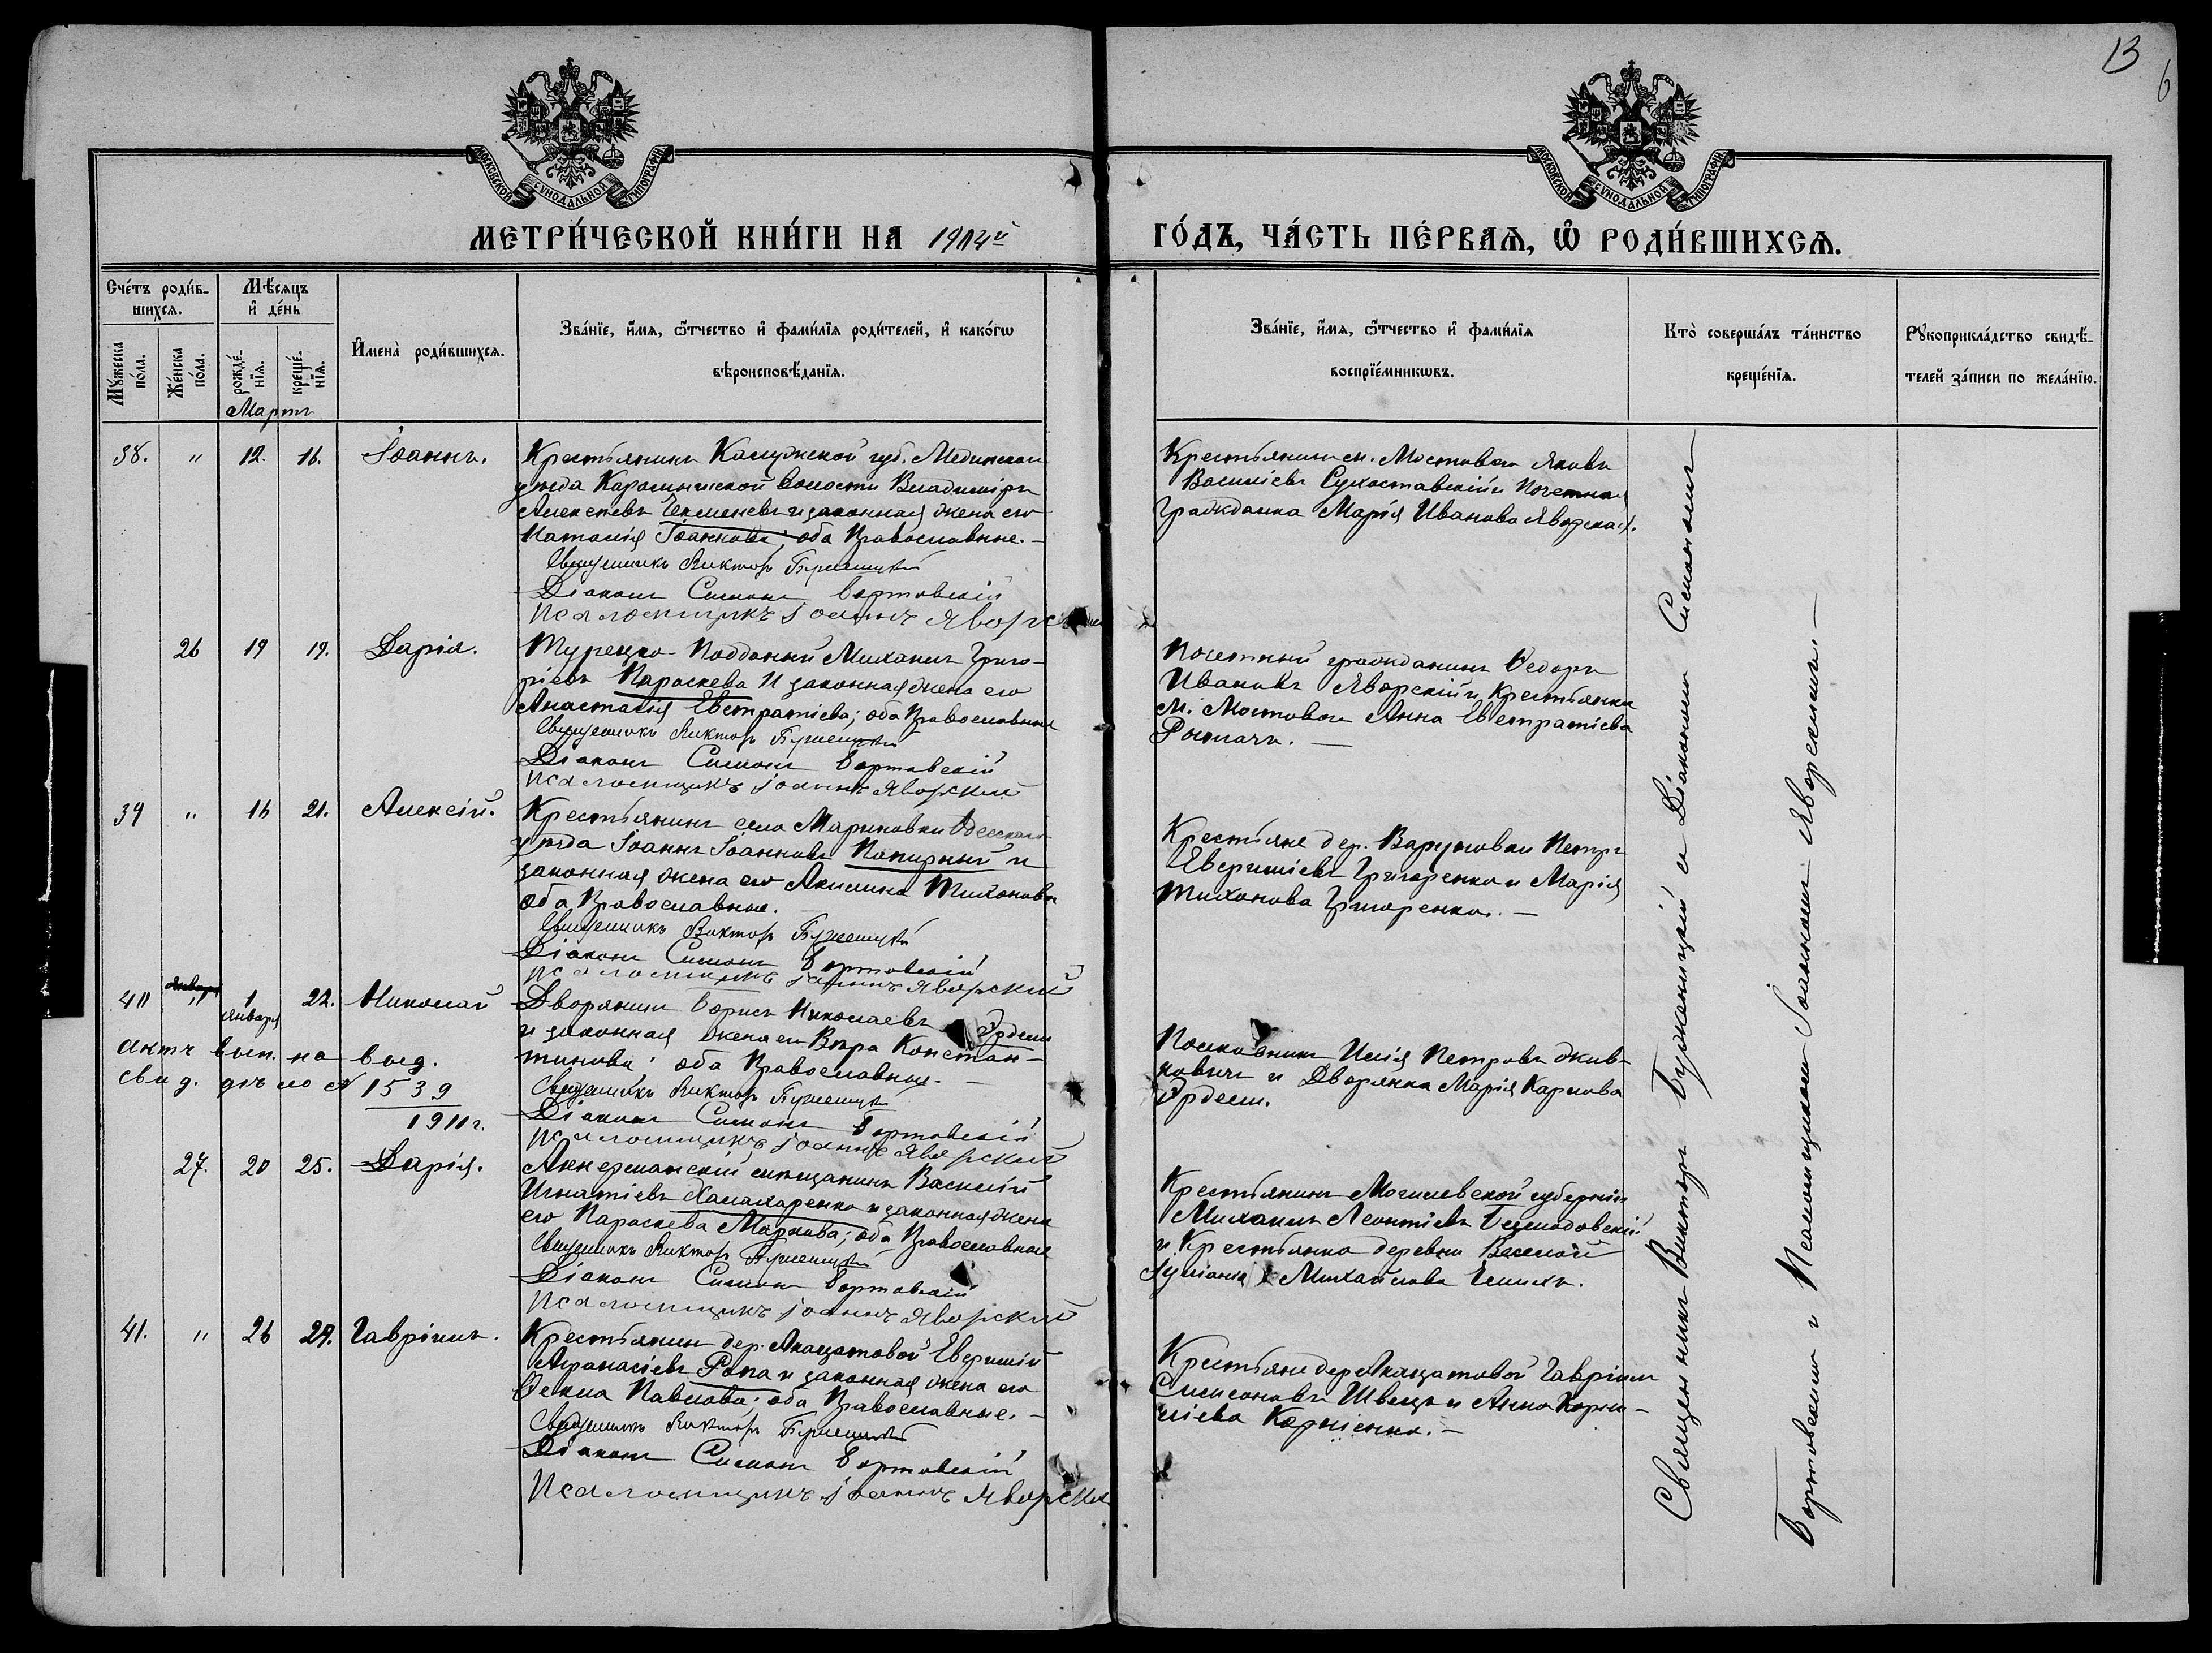 13
6
МОСКОВСКОЙ СУНОДАЛЬНОЙ ТИПОГРАФІИ
МОСКОВСКОЙ СУНОДАЛЬНОЙ ТИПОГРАФІИ
МЕТРИ́ЧЕСКОЙ КНИ́ГИ НА 1914й
ГО́ДЪ, ЧА́СТЬ ПЕ́РВАѦ, Ѡ РОДИ́ВШИХСѦ.
Сче́тъ роди́в-
шихсѧ.
Мꙋ́жеска
по́ла.
Же́нска
по́ла.
Мѣ́сѧцъ
и҆ де́нь
рожде́-
нїѧ.
креще́-
нїѧ.
Мартъ
И҆мена̀ роди́вшихсѧ.
Зва́нїе, и҆́мѧ, ѻ҆́тчество и҆ фами́лїѧ роди́телей, и҆ како́гѡ
вѣроисповѣ́данїѧ.
Зва́нїе, и҆́мѧ, ѻ҆́тчество и҆ фами́лїѧ
воспрїе́мникѡвъ.
Кто̀ соверша́лъ та́инство
креще́нїѧ.
Рꙋкоприкла́дство свидѣ́-
телей за́писи по жела́нїю.
38. " 12. 16. Іоаннъ.
Крестьянинъ Калужской губ. Медынскаго
уѣзда Карамышской волости Владиміръ
Алексѣевъ Чекменевъ и законная жена его
Наталія Іоаннова; оба Православные. -
Священникъ Викторъ Буженицкій
Діаконъ Симонъ Бортовскій
Псаломщикъ Іоаннъ Яворскій
Крестьянинъ м. Мостового Яковъ
Василіевъ Сухоставскій и Почетная
Гражданка Марія Иванова Яворская.
26 19 19. Дарія.
Турецко-Подданный Михаилъ Григо-
ріевъ Параскева и законная жена его
Анастасія Евстратіева; оба Православные
Священникъ Викторъ Буженицкій
Діаконъ Симонъ Бортовскій
Псаломщикъ Іоаннъ Яворскій
Почетный гражданинъ Ѳедоръ
Ивановъ Яворскій и Крестьянка
м. Мостового Анна Евстратіева
39 " 16 21. Алексій.
Крестьянинъ села Мариновки Одесскаго
уѣзда Іоаннъ Іоанновъ Папирный и
законная жена его Акилина Тихонова
оба Православные.
Священникъ Викторъ Буженицкій
Діаконъ Симонъ Бортовскій
Псаломщикъ Іоаннъ Яворскій
Крестьяне дер. Варюшовки Петръ
Григоренко и Марія
Тихонова Григоренко. -
40 " 1 января 22. Николай
Дворянинъ Борисъ Николаевъ Эрдели
и законная жена его Вѣра Констан-
тинова; оба Православные. -
Священникъ Викторъ Буженицкій
Діаконъ Симонъ Бортовскій
Псаломщикъ Іоаннъ Яворскій
актъ вып. на выд.
свид. дѣло № 1539
1911 г.
Полковникъ Илія Петровъ Жив-
ковичъ и Дворянка Марія Карлова
Эрдели.
27. 20 25. Дарія.
Аккерманскій мѣщанинъ Василій
Игнатіевъ Халамаренко и законная жена
его Параскева Маркова; оба Православные
Священникъ Викторъ Буженицкій
Діаконъ Симонъ Бортовскій
Псаломщикъ Іоаннъ Яворскій
Крестьянинъ Могилевской губерніи
Михаилъ Леонтіевъ
и Крестьянка деревни Веселой
Іуліанія Михайлова
41. " 26 29. Гавріилъ.
Крестьянинъ дер. Акацатовой
Аѳанасіевъ Ропа и законная жена его
Ѳекла Павлова; оба Православные. -
Священникъ Викторъ Буженицкій
Діаконъ Симонъ Бортовскій
Псаломщикъ Іоаннъ Яворскій
Крестьяне дер. Акацатовой Гавріилъ
Симеоновъ Швецъ и Анна Корни-
ліева Корніенко. -
Священникъ Викторъ Буженицкій съ Діакономъ Симономъ
Бортовскимъ и Псаломщикомъ Іоанномъ Яворскимъ. -